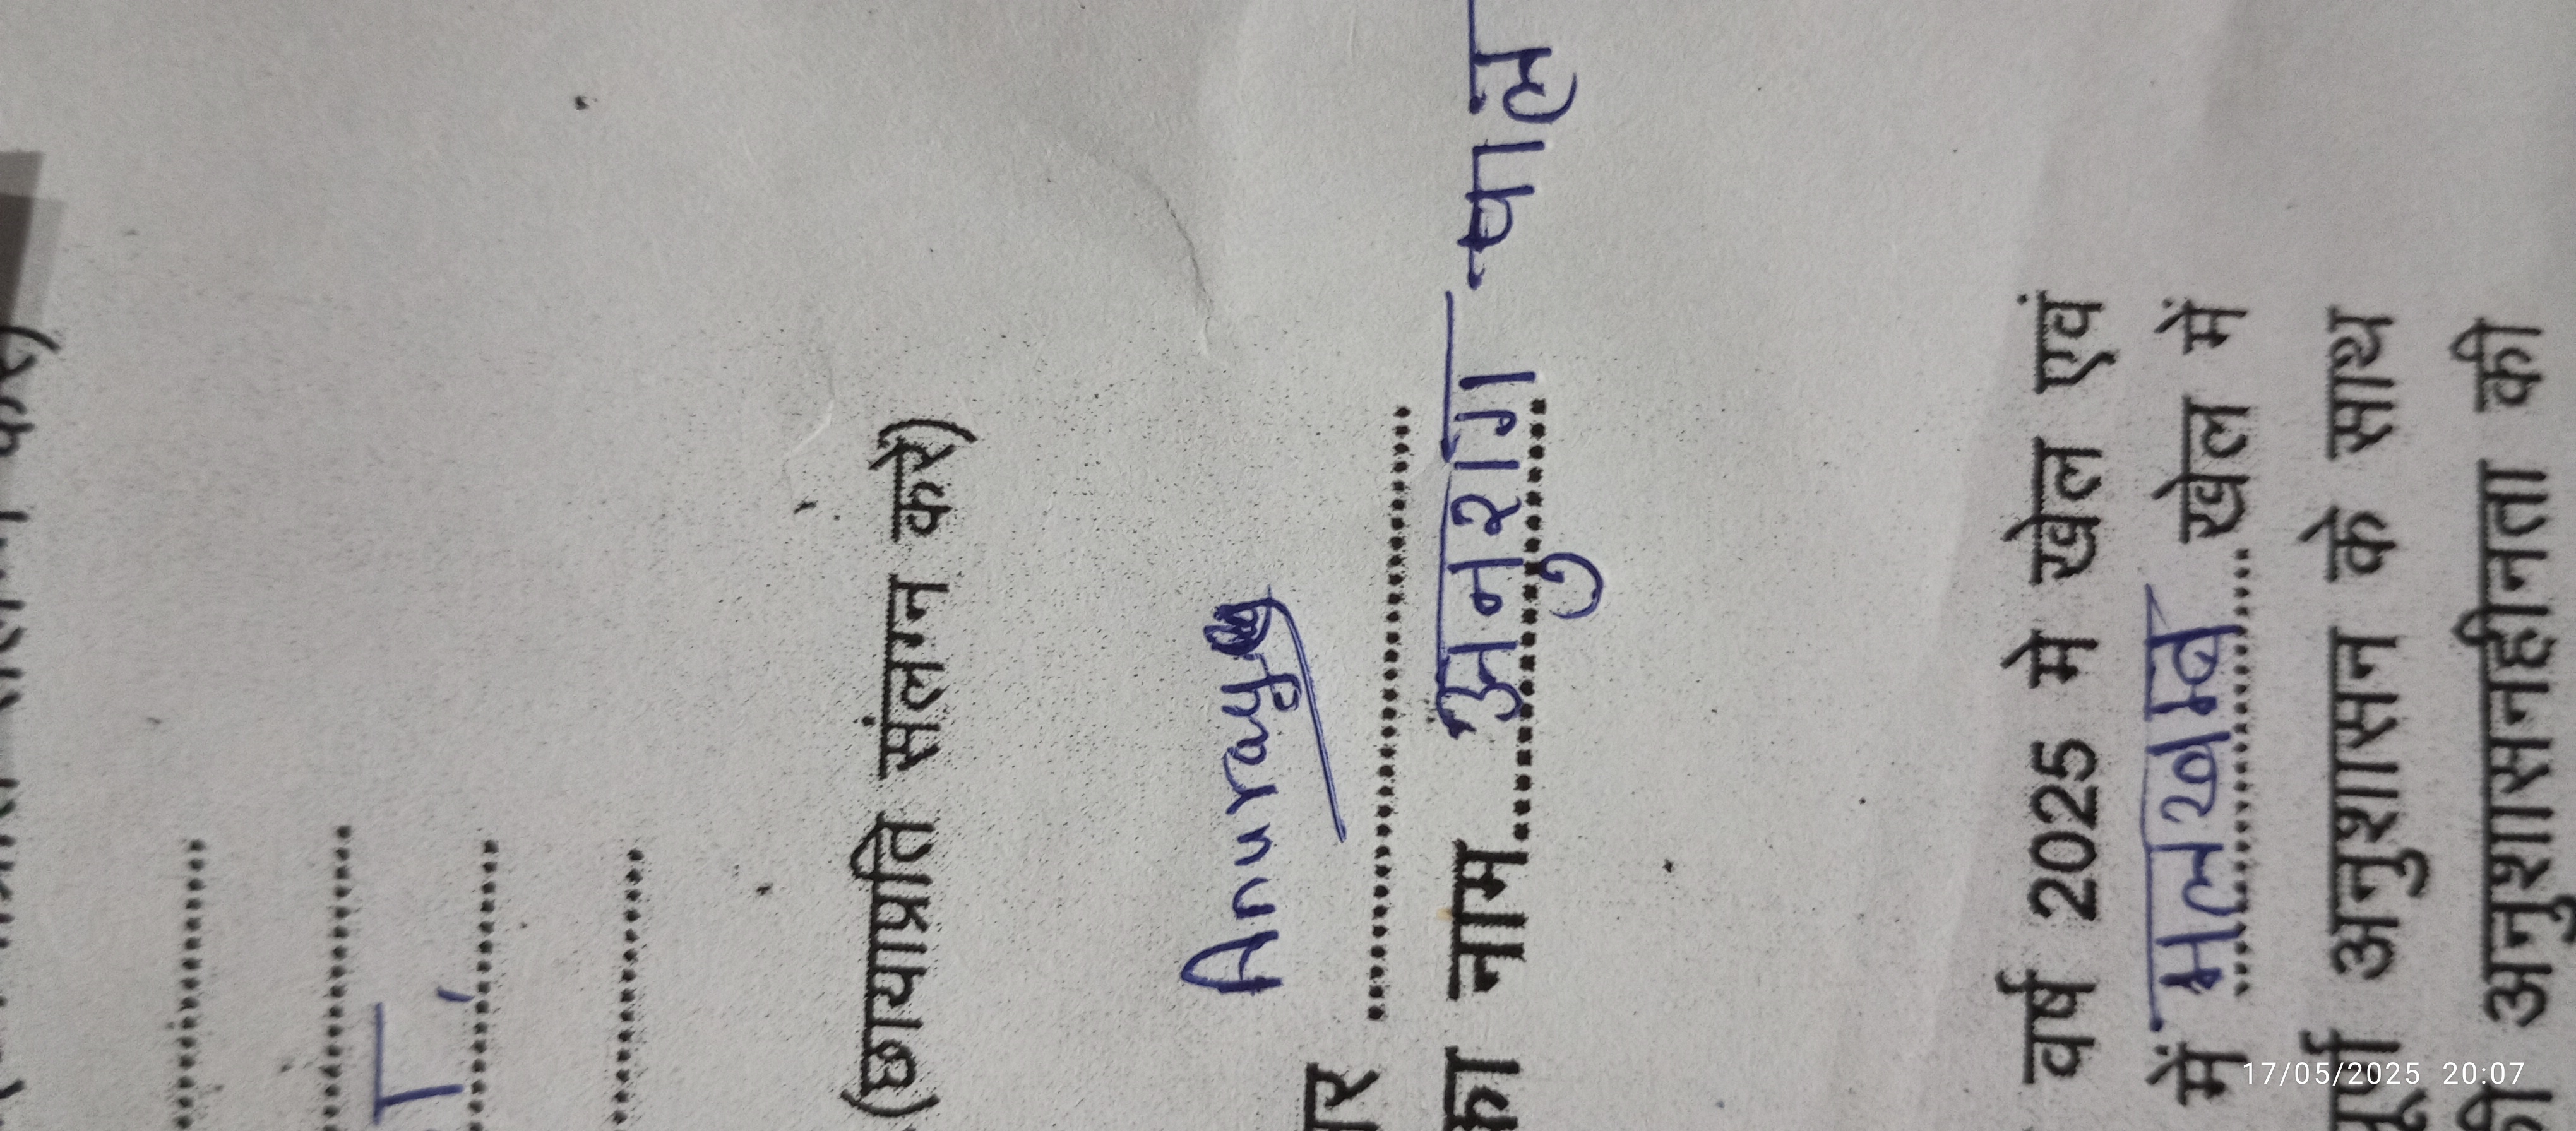 (छायाप्रति संलग्न करे)
Anurag
का नाम..... अनुराग
वर्ष 2025 मे खेल एवं
में मलखम्ब खेल में
अनुशासन के साथ
की अनुशासनहीनता की
17/05/2025 20:07